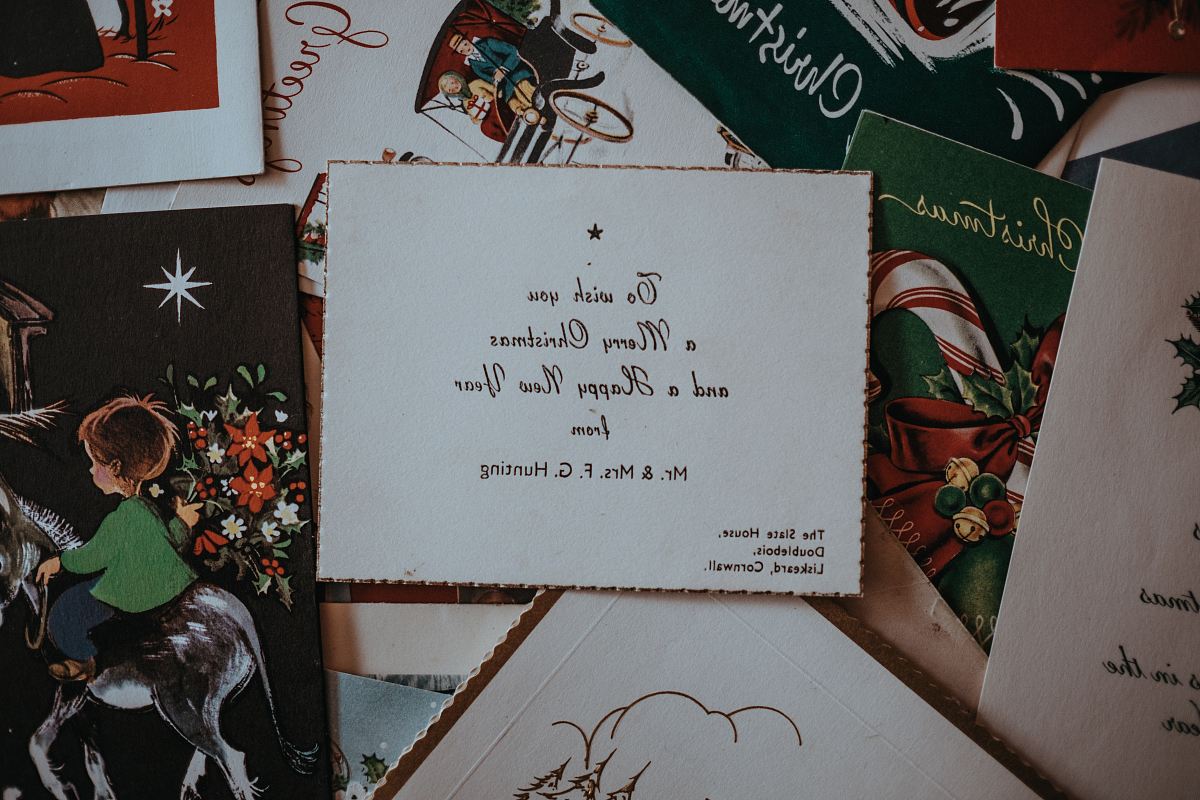 Greeting
Christmas
Christmas
To wish you
a Merry Christmas
and a Happy New Year
from
Mr. & Mrs. F. G. Hunting
The Slate House,
Doublebois,
Liskeard, Cornwall.
s in the